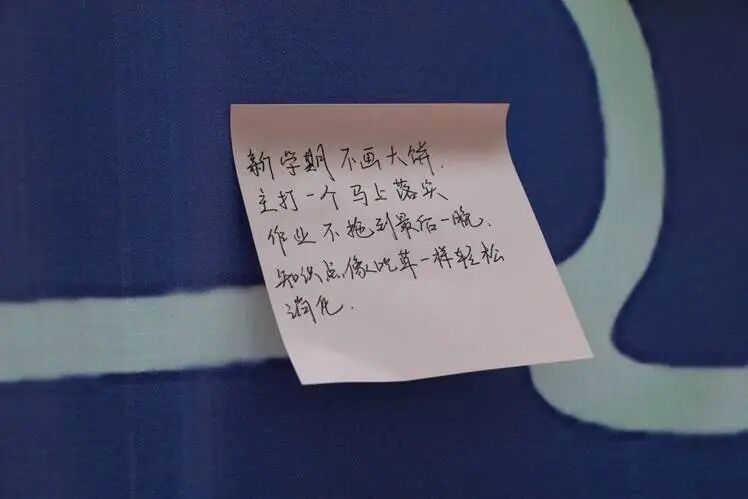 新学期 不画大饼.
主打一个马上落实
作业不拖到最后一晚.
知识点像吃草一样轻松
消化.